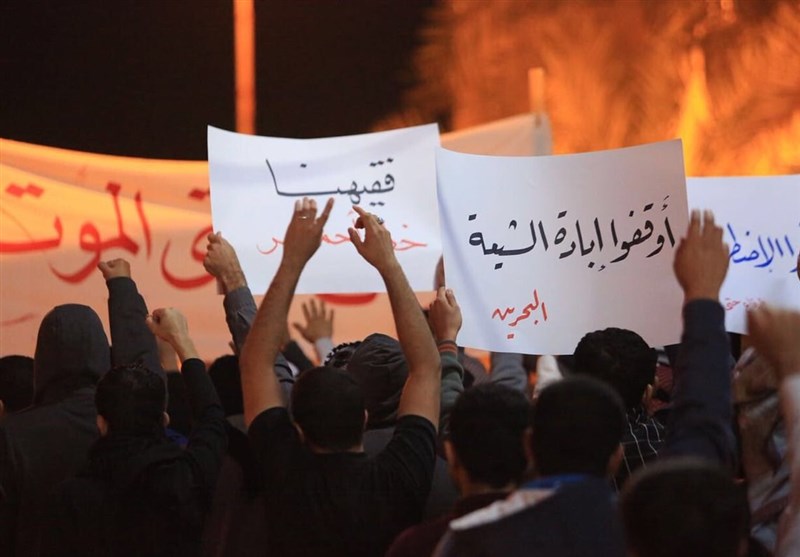 فقيهنا
خط أحمر
أوقفوا إبادة الشيعة
البحرين
الموت
حتى